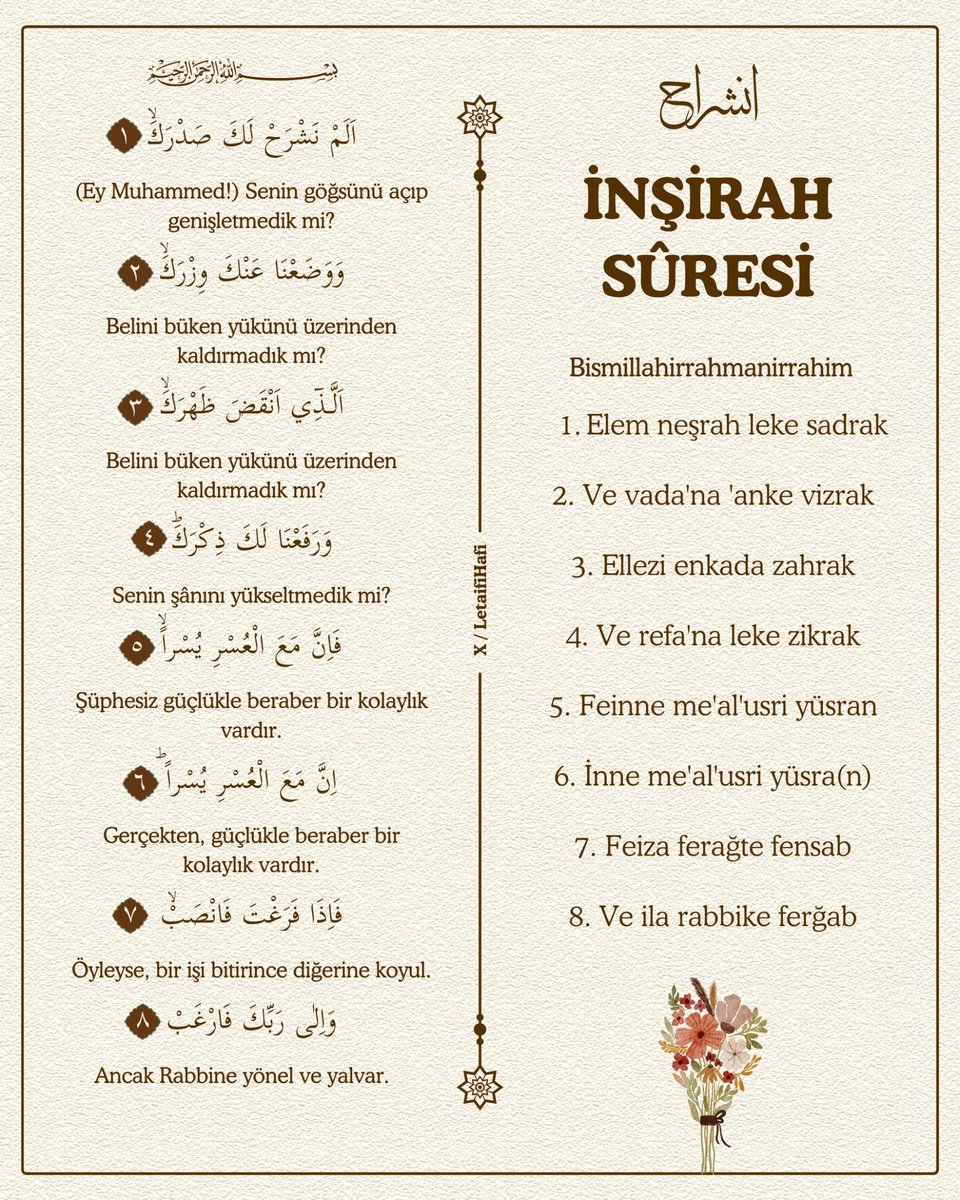 بِسْمِ اللّٰهِ الرَّحْمٰنِ الرَّحِيمِ
اَلَمْ نَشْرَحْ لَكَ صَدْرَكَۙ ١
(Ey Muhammed!) Senin göğsünü açıp
genişletmedik mi?
وَوَضَعْنَا عَنْكَ وِزْرَكَۙ ٢
Belini büken yükünü üzerinden
kaldırmadık mı?
اَلَّـذ۪ٓي اَنْقَضَ ظَهْرَكَۙ ٣
Belini büken yükünü üzerinden
kaldırmadık mı?
وَرَفَعْنَا لَكَ ذِكْرَكَۜ ٤
Senin şânını yükseltmedik mi?
فَاِنَّ مَعَ الْعُسْرِ يُسْراًۙ ٥
Şüphesiz güçlükle beraber bir kolaylık
vardır.
اِنَّ مَعَ الْعُسْرِ يُسْراًۜ ٦
Gerçekten, güçlükle beraber bir
kolaylık vardır.
فَاِذَا فَرَغْتَ فَانْصَبْۙ ٧
Öyleyse, bir işi bitirince diğerine koyul.
وَاِلٰى رَبِّكَ فَارْغَبْ ٨
Ancak Rabbine yönel ve yalvar.
X / LetaifiHafi
انشراح
İNŞİRAH
SÛRESİ
Bismillahirrahmanirrahim
1. Elem neşrah leke sadrak
2. Ve vada'na 'anke vizrak
3. Ellezi enkada zahrak
4. Ve refa'na leke zikrak
5. Feinne me'al'usri yüsran
6. İnne me'al'usri yüsra(n)
7. Feiza ferağte fensab
8. Ve ila rabbike ferğab